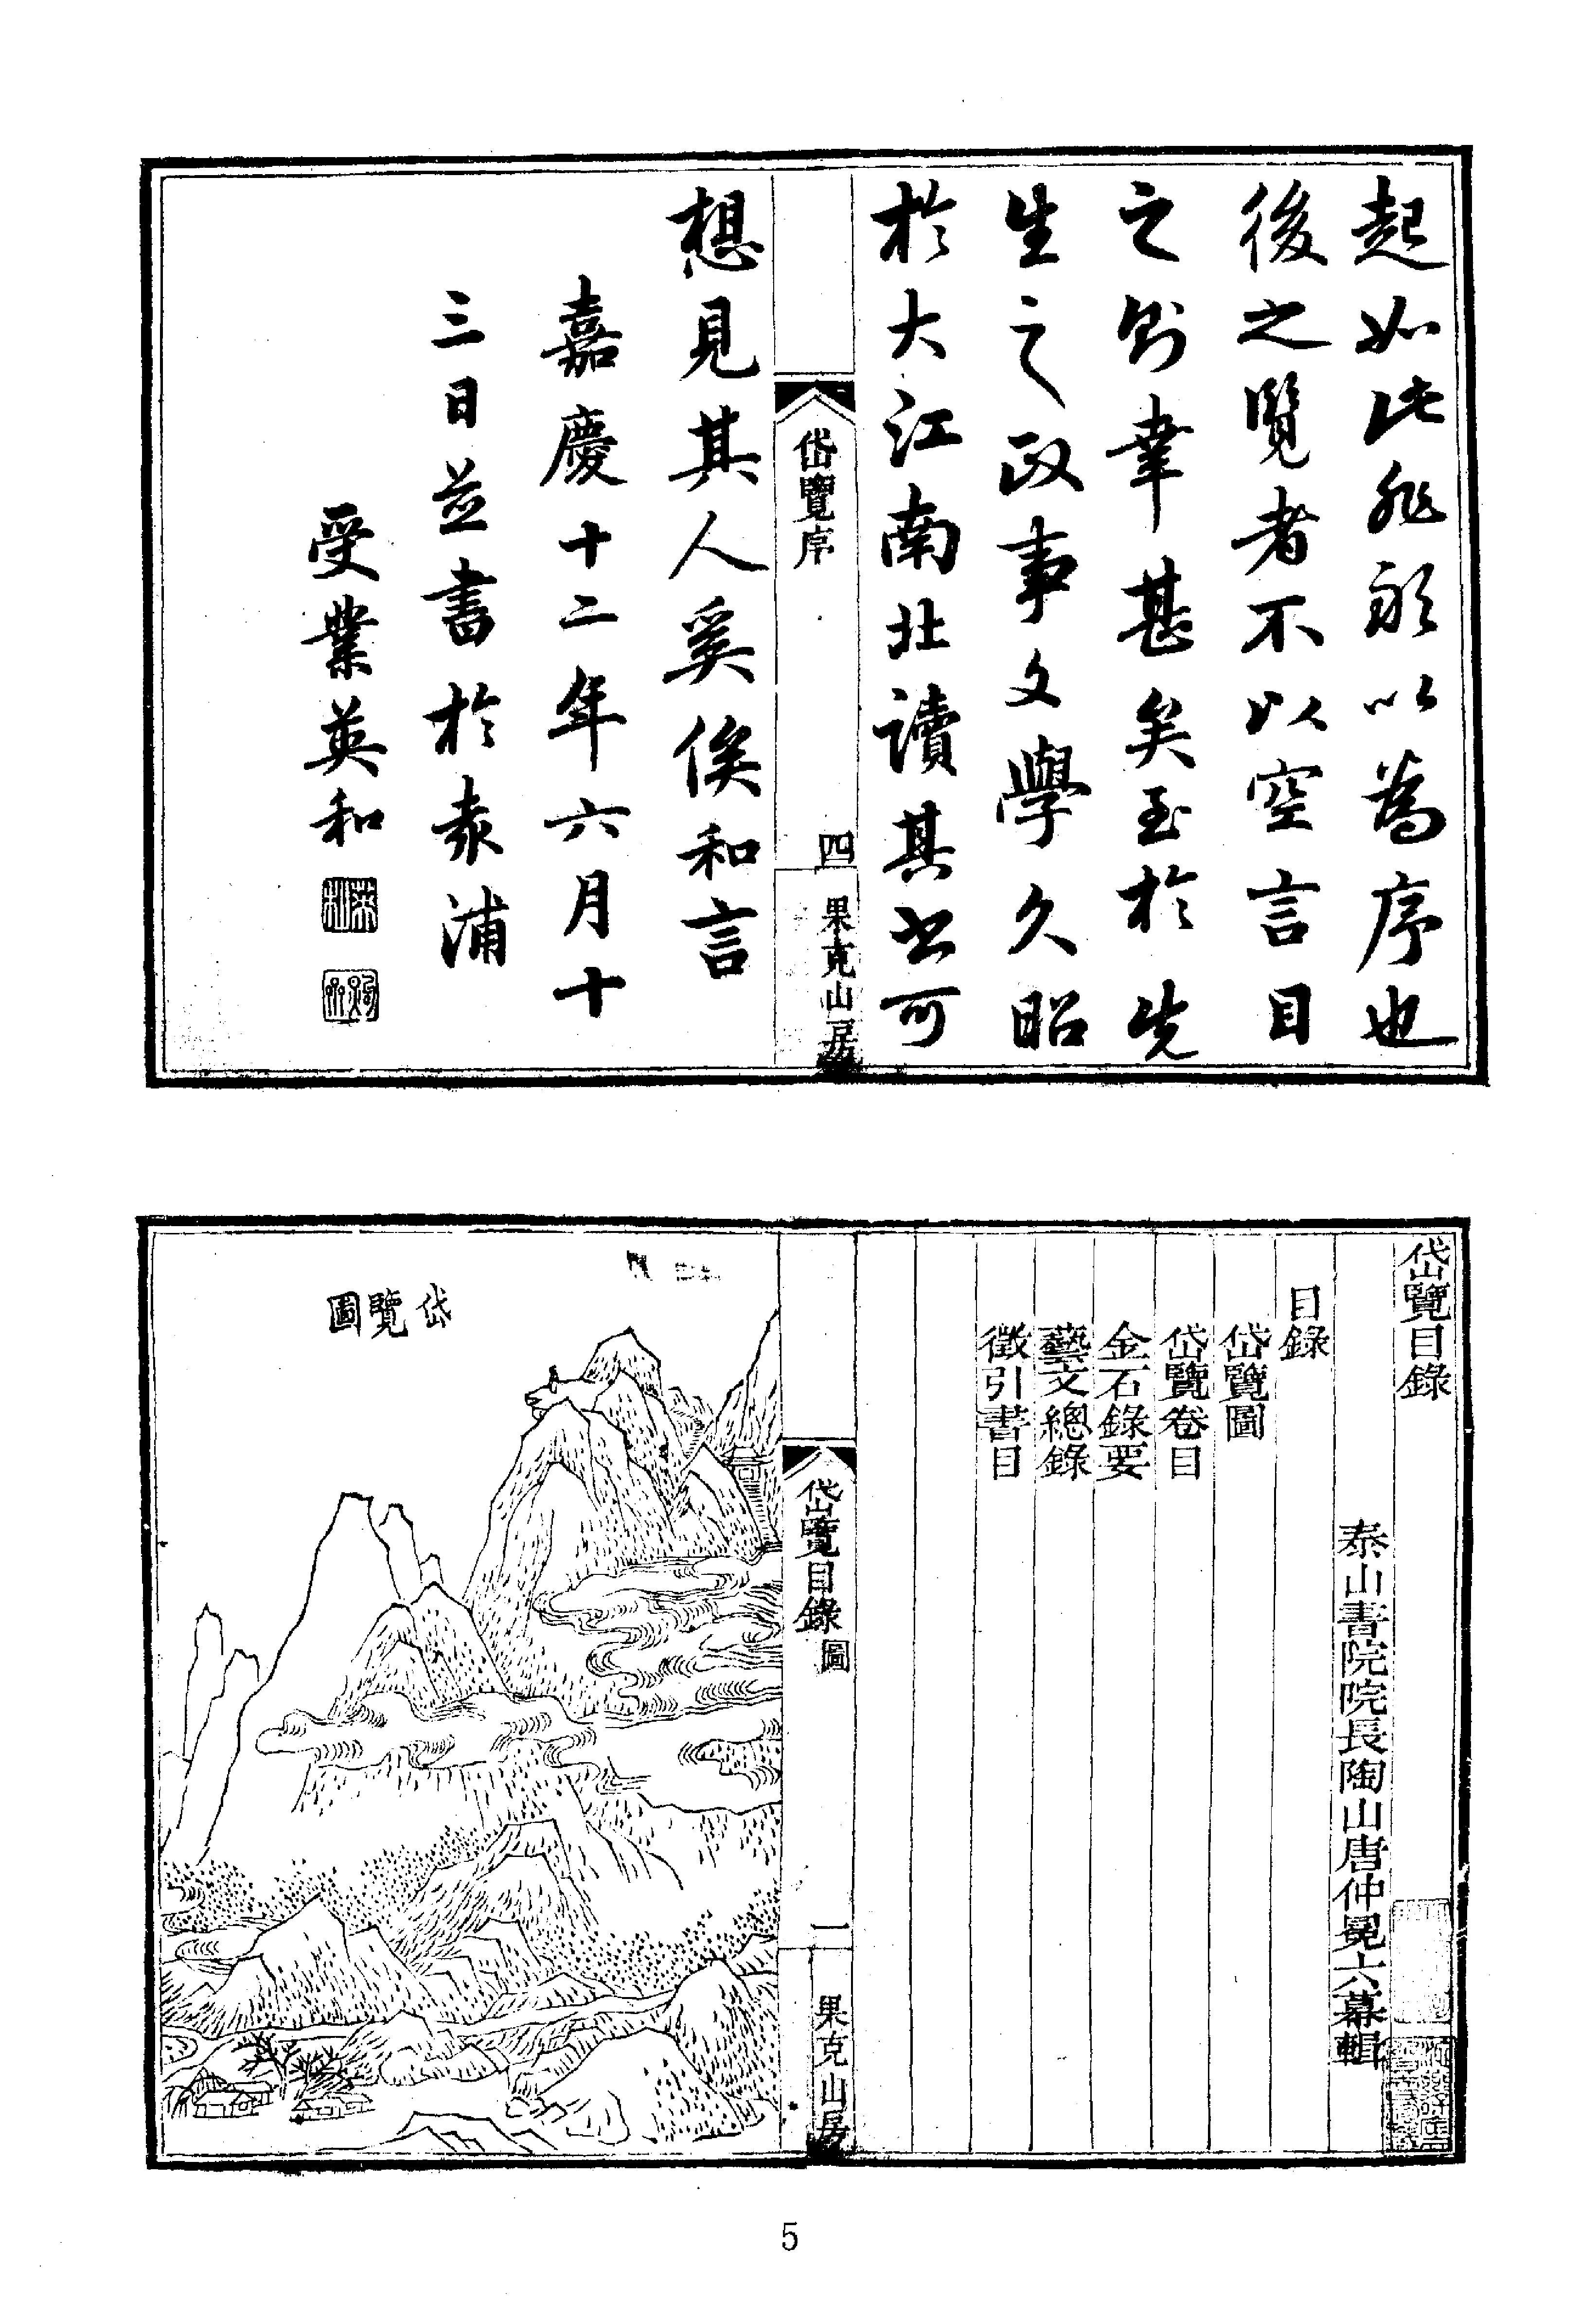 起如此非敢以為序也
後之覽者不以空言目
之則幸甚矣至於先
生之政事文學久昭
於大江南北讀其書可
岱覽序
四
果克山房
想見其人奚俟和言
嘉慶十二年六月十
三日並書於袁浦
受業英和
岱覽目錄
泰山書院院長陶山唐仲冕六幕輯
目錄
岱覽圖
岱覽卷目
金石錄要
藝文總錄
徵引書目
岱覽目錄
圖
一
果克山房
岱覽圖
5